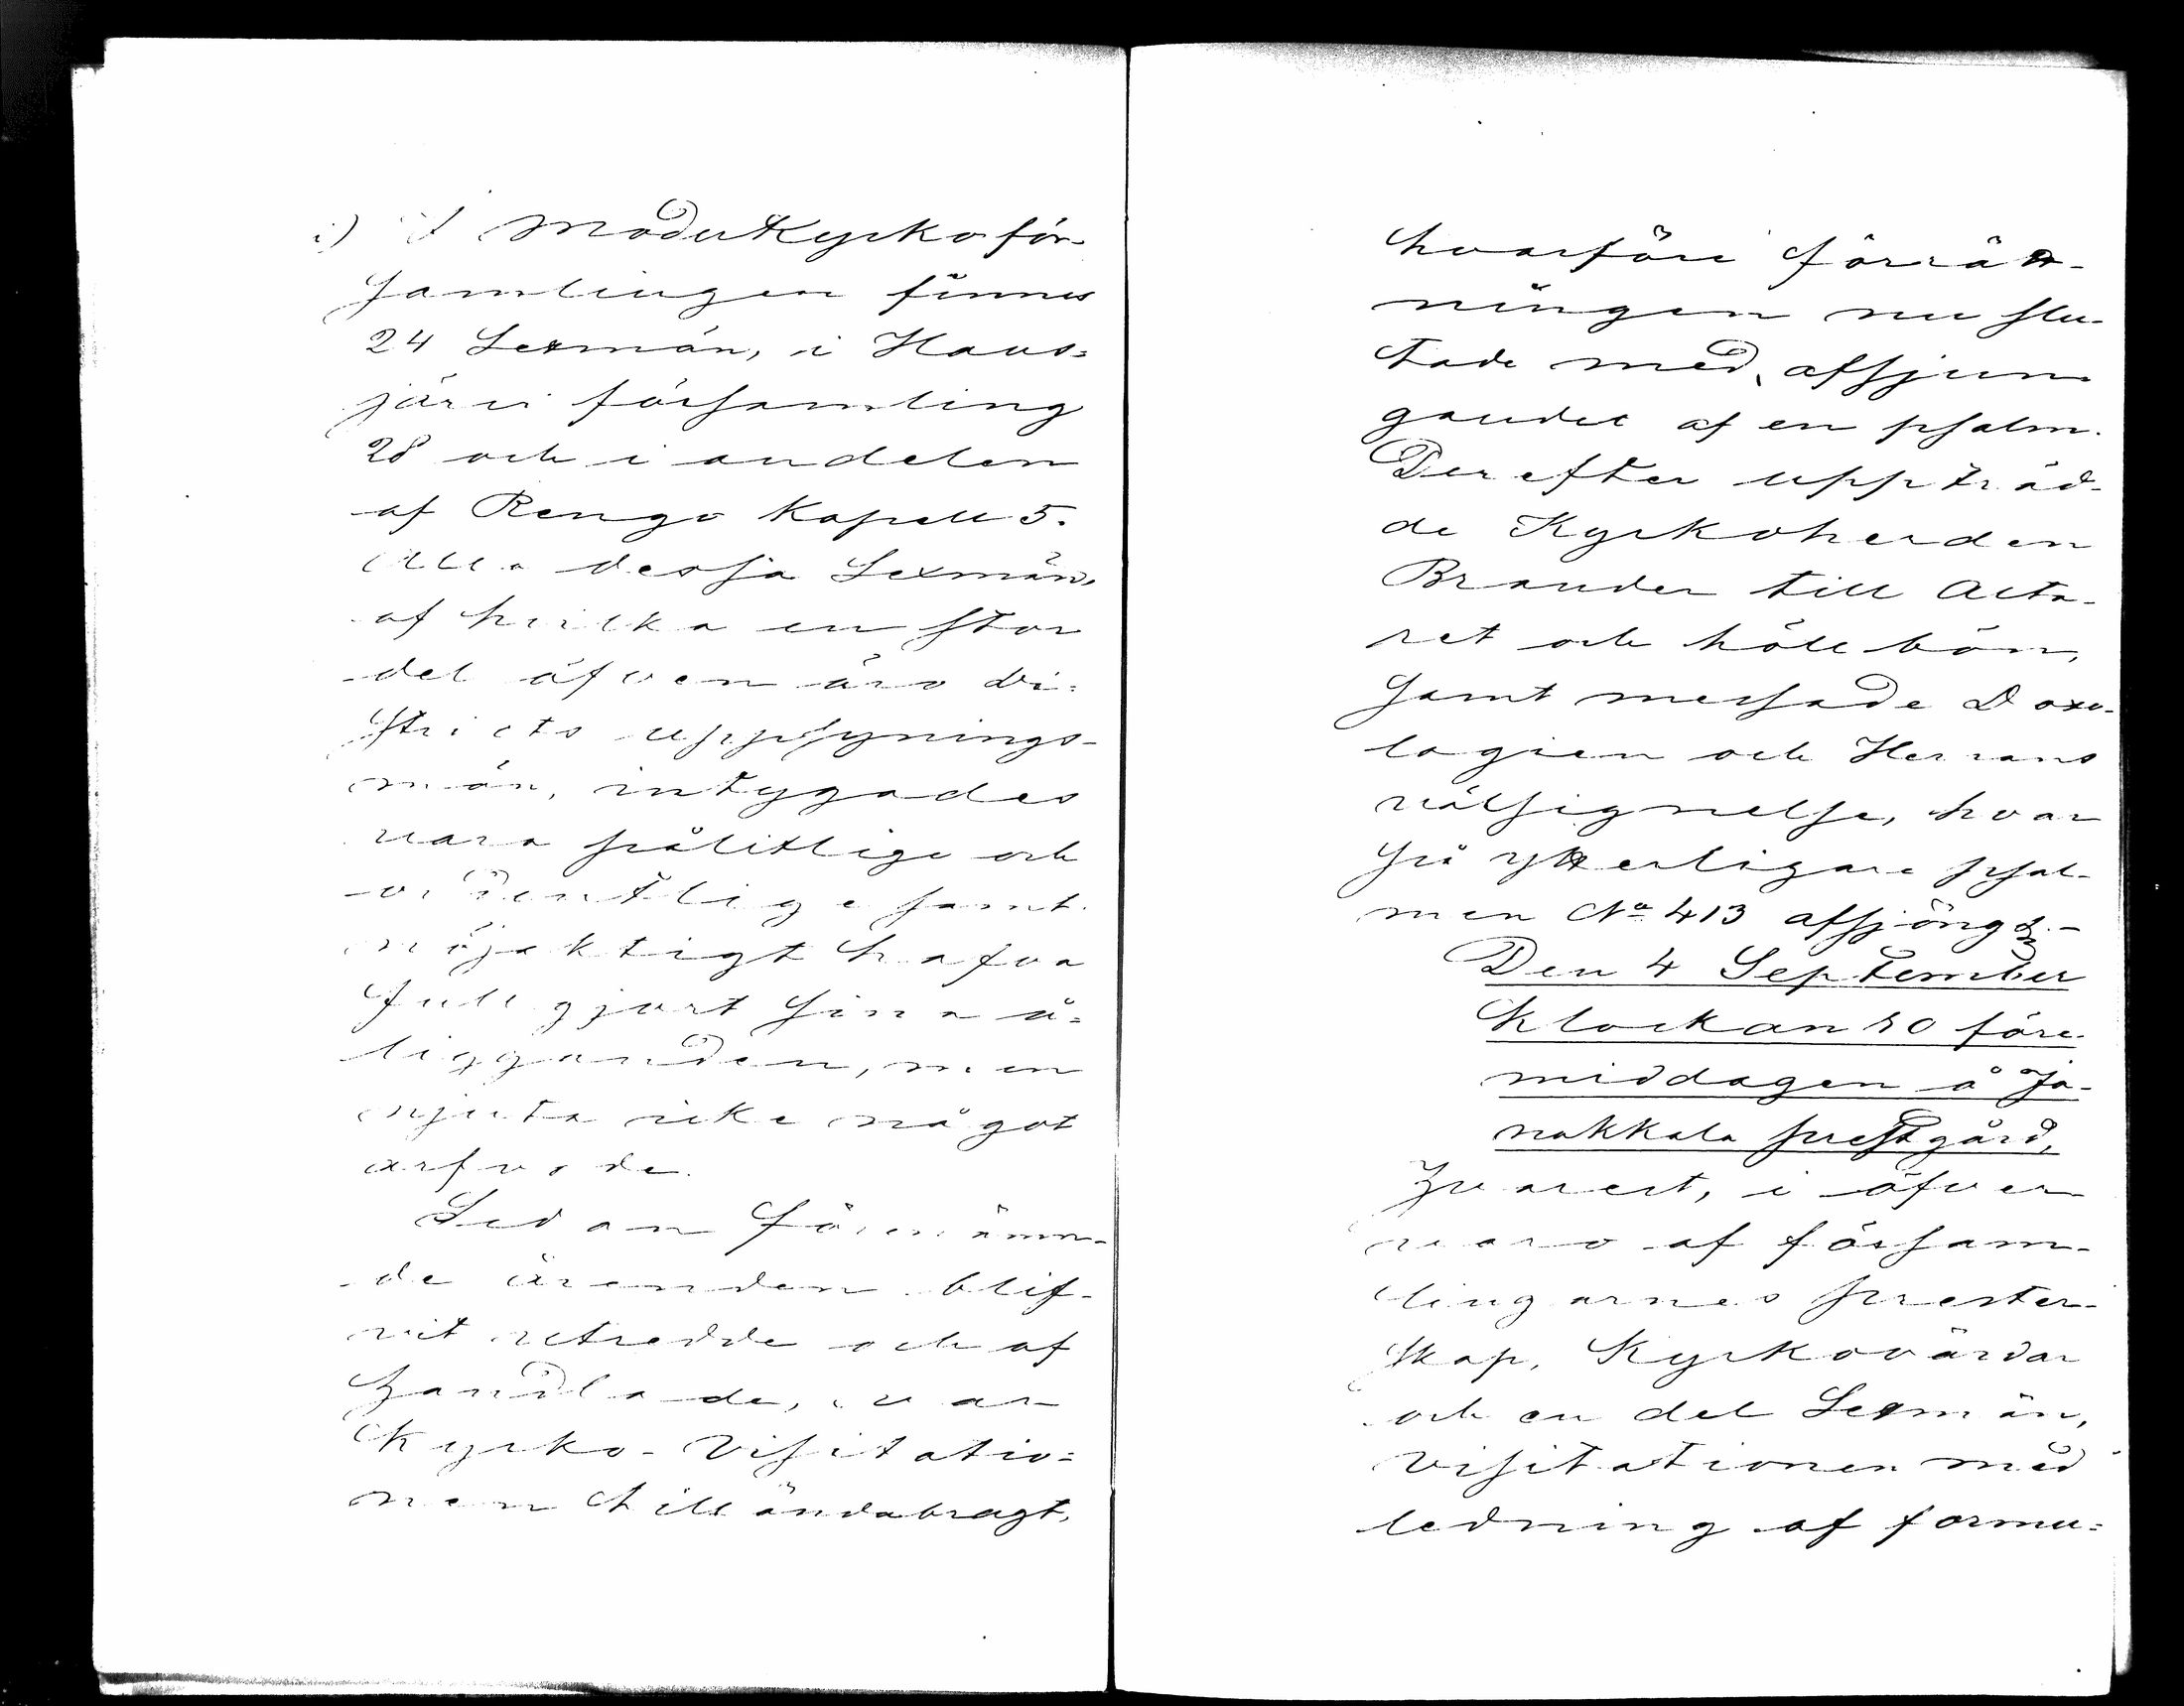 i) I Moderkyrkoför-
samlingen finnes
24 Sexmän, i Haus=
järvi församling
28 och i andelen
af Rengo Kapell 5.
Alla dessa Sexmän,
af hvilka en stor
del äfven äro di=
stricts uppsynings-
män, intygades
vara pålitlige och
ordentlige samt
nöjaktigt hafva
fullgjort sina å=
ligganden, men
njuta icke något
arfvode.
Sedan förenämn-
de ärenden blif-
vit utredde och af
handlade, var
Kyrko-Visitatio=
nen till ändabragt,
hvarföre förrätt-
ningen nu slu-
tade med afsjun-
gandet af en psalm.
Derefter uppträd-
de Kyrkoherden
Brander till Alta-
ret och höll bön,
samt messade Doxo-
logien och Herrans
välsignelse, hvar
på ytterligare psal-
men No 413 afsjöngs.-
Den 4 September
Klockan 10 före-
middagen å Ja-
nakkala prestgård,
hvarest, i öfver
varo af försam-
lingarnes prester-
skap, Kyrkovärdar
och en del Sexmän,
Visitationen med
ledning af formu=